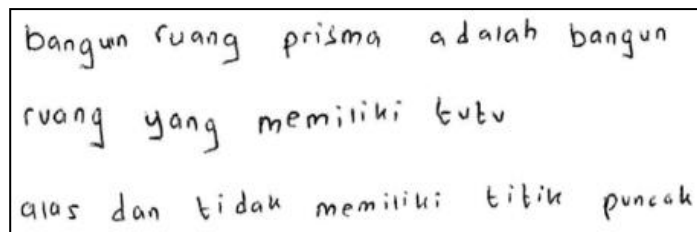 bangun ruang prisma adalah bangun
ruang yang memiliki tutu
alas dan tidak memiliki titik puncak